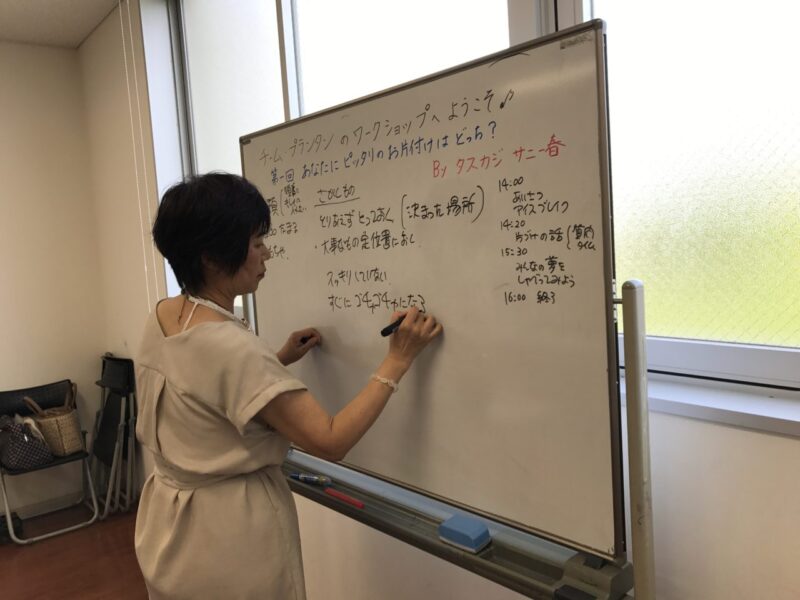 チーム・プランタンのワークショップへようこそ♪
第一回 あなたにピッタリのお片付けはどっち？
By タスカジ サニー春
さがしもの
とりあえずとっておく (決まった場所)
・大事なもの定位置におく
スッキリしていない
すぐにゴチャゴチャになる
たまる
14:00
あいさつ
アイスブレイク
14:20
片づけの話 (質問タイム
15:30
みんなの夢を
しゃべってみよう
16:00 終了